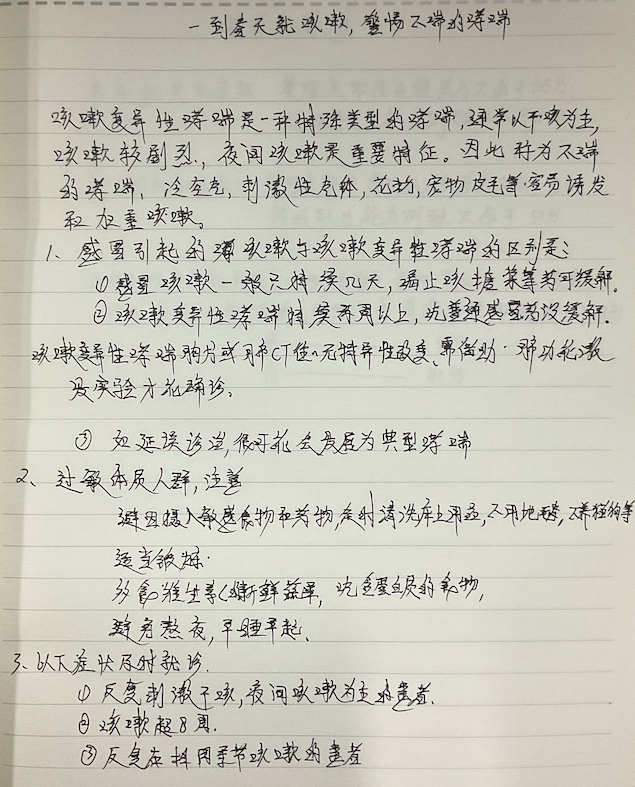 一到春天就咳嗽,警惕不喘的哮喘
咳嗽变异性哮喘是一种特殊类型的哮喘,通常以干咳为主,
咳嗽较剧烈,夜间咳嗽是重要特征。因此称为不喘
的哮喘,冷空气,刺激性气体,花粉,宠物皮毛等容易诱发
和加重咳嗽。
1、感冒引起的咳嗽与咳嗽变异性哮喘的区别是:
①感冒咳嗽一般只持续几天,喝止咳糖浆等药可缓解。
②咳嗽变异性哮喘持续两周以上,吃普通感冒药没缓解。
咳嗽变异性哮喘胸片或肺CT往往无特异性改变,需借助肺功能激
发实验才能确诊。
③如延误诊治,很可能会发展为典型哮喘
2、过敏体质人群,注意
避免摄入敏感食物和药物,定时清洗床上用品,不用地毯,不养猫狗等
适当锻炼.
多食维生素C新鲜蔬果,吃含蛋白质的食物,
避免熬夜,早睡早起、
3、以下症状及时就诊.
①反复刺激干咳,夜间咳嗽为主的患者.
②咳嗽超8周.
③反复在相同季节咳嗽的患者